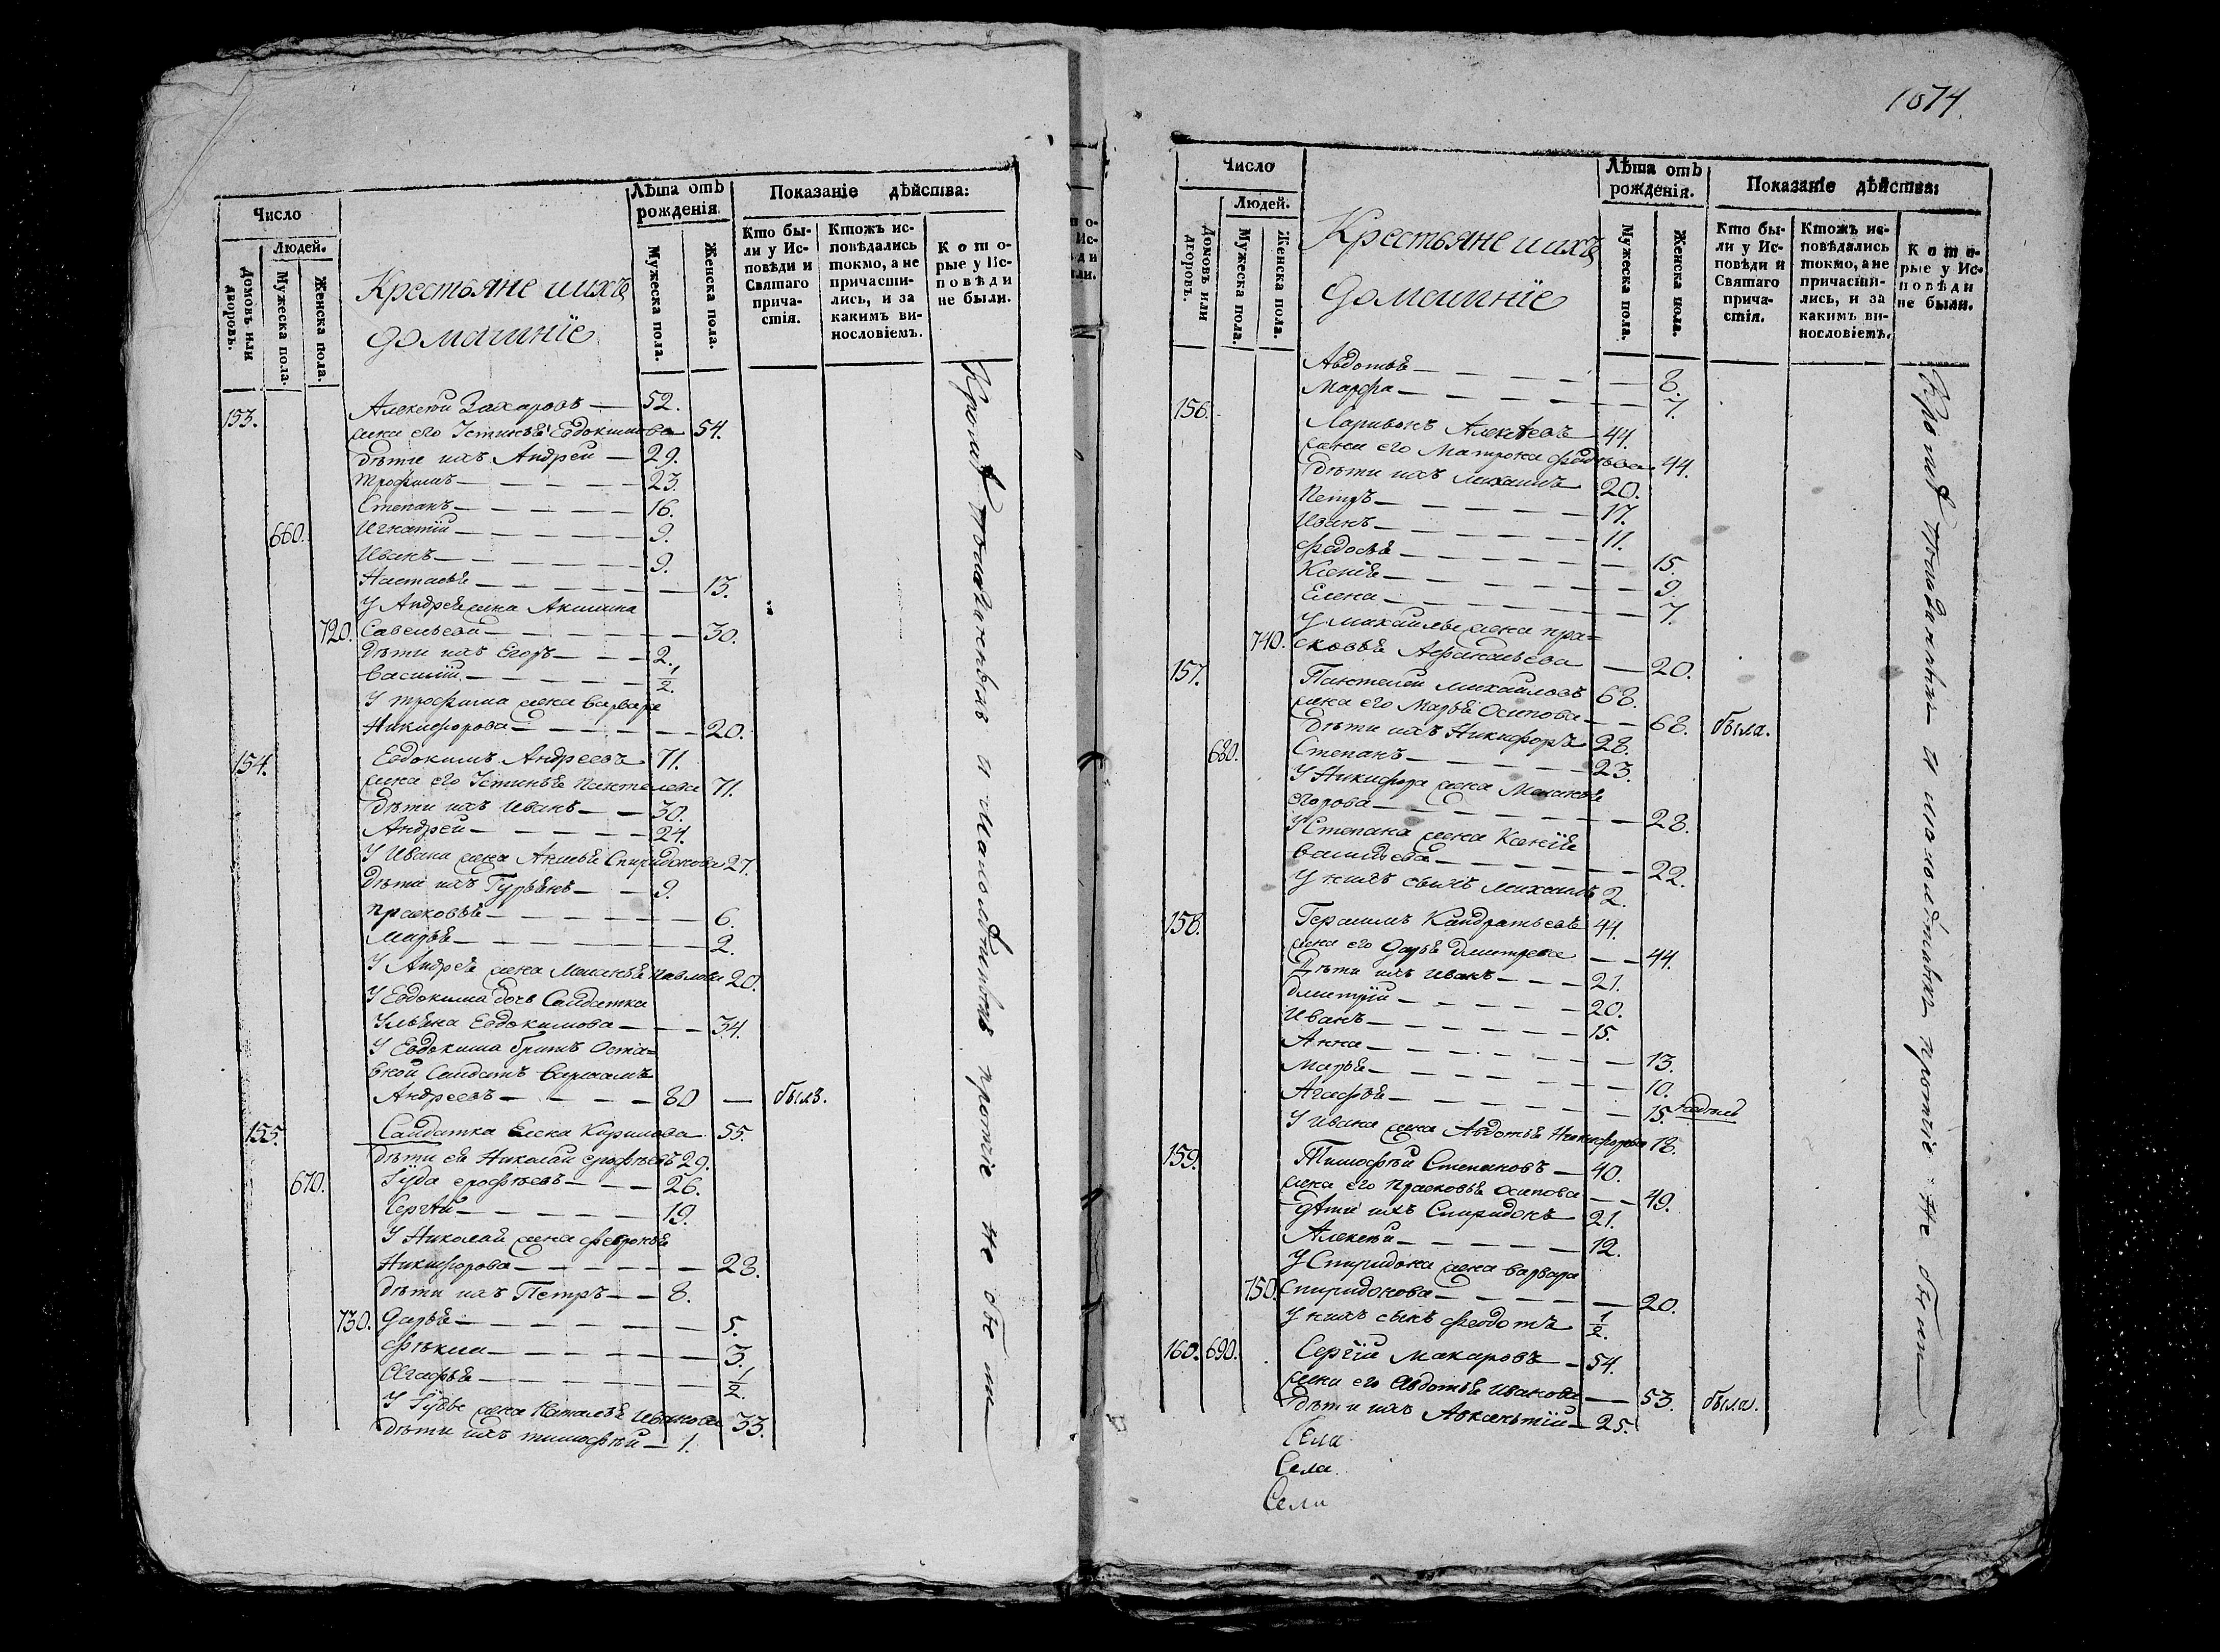 Число
Людей.
Домовъ или дворовъ.
Мужеска пола.
Женска пола.
Крестьяне и ихъ
домашніе
Лѣта отъ рожденія
Мужеска пола.
Женска пола.
Показаніе дѣйства:
Кто были у Исповѣди и Святаго причастія.
Ктожъ исповѣдались токмо, а не причастились, и за какимъ винословіемъ.
Которые у Исповѣди не были.
153. Алексѣй Захаровъ — 52.
жена его Устинья Евдокимова 54.
дѣти ихъ Андрей — 29.
Трофимъ — 23.
Степанъ — 16.
660. Игнатій — 9.
Иванъ — 9.
Настасья — 13.
У Андрея жена Акилина
720. Савельева — 30.
Дѣти ихъ Егоръ — 2.
Василій — 1/2.
У Трофима жена Варвара
Никифорова — 20.
154. Евдокимъ Андреевъ 71.
жена его Устинья Пантелева 71.
дѣти ихъ Иванъ — 30.
Андрей — 24.
У Ивана жена Спиридонова 27.
Дѣти ихъ Гурьянъ — 9.
Прасковья — 6.
Марья — 2.
У Андрея жена Меланья Павлова 20.
У Евдокима дочь Салдатка
Ульяна Евдокимова — 34.
У Евдокима братъ Оста-
вной Салдатъ
Андреевъ — 80 — былъ.
155. Салдатка Елена Кирилова 55.
дѣти ея Николай Ерофѣевъ 29.
670. Іуда Ерофѣевъ — 26.
Сергѣй — 19.
У Николая жена Февронья
Никифорова — 28.
Дѣти ихъ Петръ — 8.
730. Дарья — 5.
Фекла — 3.
Агафья — 1/2.
У Іуды жена Наталья Иванова 33.
Дѣти ихъ Тимофѣй — 1.
Кромѣ показанныхъ и малолѣтныхъ протчіе не были
1074.
Число
Людей.
Домовъ или дворовъ.
Мужеска пола.
Женска пола.
Крестьяне и ихъ
домашніе
Лѣта отъ рожденія.
Мужеска пола.
Женска пола.
Показаніе дѣйства:
Кто были у Исповѣди и Святаго причастія.
Ктожъ исповѣдались токмо, а не причастились, и за какимъ винословіемъ.
Которые у Исповѣди не были.
Авдотья — 8.
Марфа — 7.
156. Ларивонъ Алексѣевъ 44.
жена его Матрона 44.
дѣти ихъ Михаилъ 20.
Петръ — 17.
Иванъ — 11.
Федосья — 15.
Ксенія — 9.
Елена — 7.
У Михаилы жена Пра-
740. сковья Афанасьева — 20.
157. Пантелей Михайловъ 68.
жена его Марья Осипова — 68. была.
Дѣти ихъ Никифоръ 28.
680. Степанъ — 23.
У Никифора жена Меланья
Егорова — 28.
У Степана жена Ксенія
Васильева — 22.
У нихъ сынъ Михаилъ 2.
158. Герасимъ Кандратьевъ 44.
жена его Дарья Дмитрева — 44.
Дѣти ихъ Иванъ — 21.
Дмитрій — 20.
Иванъ — 15.
Анна — 13.
Марья — 10.
Агафья — 15.
У Ивана жена Авдотья Никифорова 18.
159. Тимофѣй Степановъ — 40.
жена его Прасковья Осипова — 49.
дѣти ихъ Спиридонъ 21.
Алексѣй — 12.
У Спиридона жена Варвара
750. Спиридонова — 20.
У нихъ сынъ Феодотъ 1/2.
160. 690. Сергій Макаровъ — 54.
жена его Авдотья Иванова — 53. была.
дѣти ихъ — 25.
Кромѣ показанныхъ и малолѣтныхъ протчіе не были
Села
Села.
Села